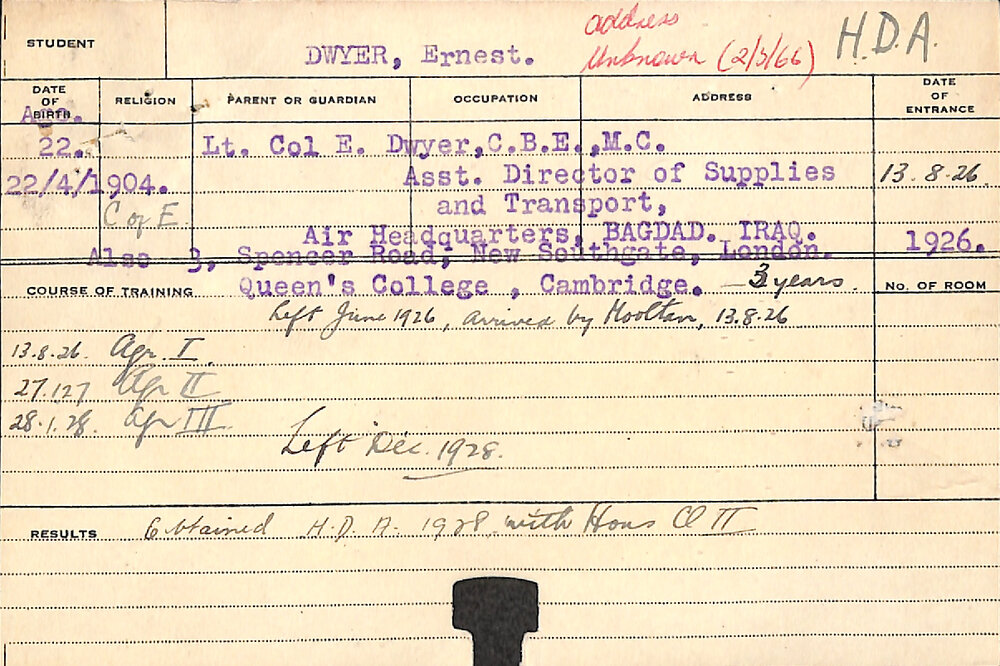 STUDENT
DWYER, Ernest.
address
Unknown (2/3/66)
H.D.A.
DATE OF BIRTH
RELIGION
PARENT OR GUARDIAN
OCCUPATION
ADDRESS
DATE OF ENTRANCE
Age.
22.
Lt. Col E. Dwyer, C.B.E., M.C.
22/4/1904.
Asst. Director of Supplies
13.8.26.
C of E
and Transport,
Air Headquarters, BAGDAD. IRAQ.
1926.
Also 3, Spencer Road, New Southgate, London.
COURSE OF TRAINING
Queen's College, Cambridge. — 3 years.
No. OF ROOM
Left June 1926, arrived by Mooltan, 13.8.26
13.8.26. Agr. I.
27.1.27 Agr II
28.1.28. Agr III.
Left Dec. 1928.
RESULTS
Obtained H.D.A. 1928 with Hons Cl II